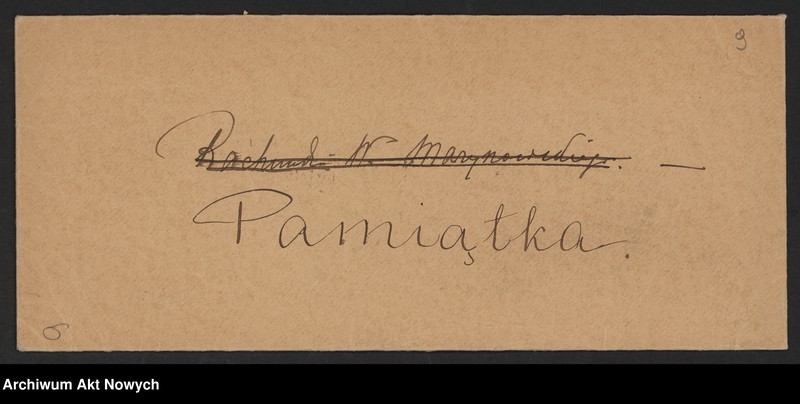 9
Rachunek W. Marynowskiego. —
Pamiątka.
6
Archiwum Akt Nowych